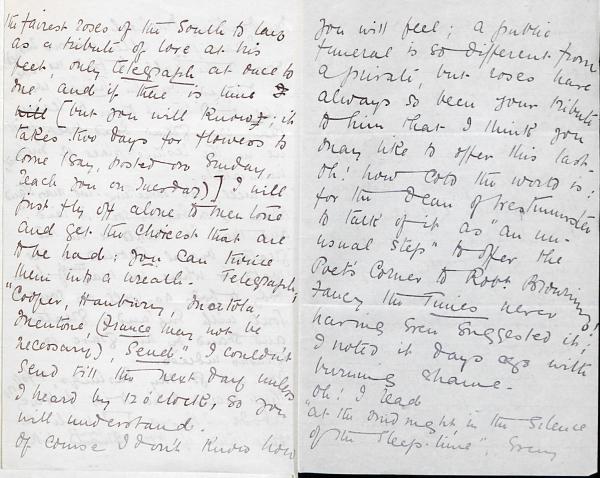 the fairest roses of the South to lay
as a tribute of love at his
feet, only telegraph at once to
me and if there is time I
will [but you will know; it
takes two days for flowers to
come (say, posted on Sunday,
reach you on Tuesday)] I will
just fly off alone to Mentone
and get the choicest that are
to be had: you can twine
them into a wreath. Telegraph,
"Cooper, Hanbury, Mortola,
Mentone, (France may not be
necessary), Send." I couldn't
send till the next day unless
I heard by 12 o'clock, so you
will understand.
Of course I don't know how
you will feel; a public
funeral is so different from
a private, but roses have
always so been your tribute
to him that I think you
may like to offer this last.
Oh! how cold the world is:
for the Dean of Westminster
to talk of it as "an un-
usual step" to offer the
Poet's Corner to Robt Browning!
Fancy the Times never
having even suggested it;
I noted it days ago with
burning shame.
Oh! I read
"at the midnight in the silence
of the sleep-time", every